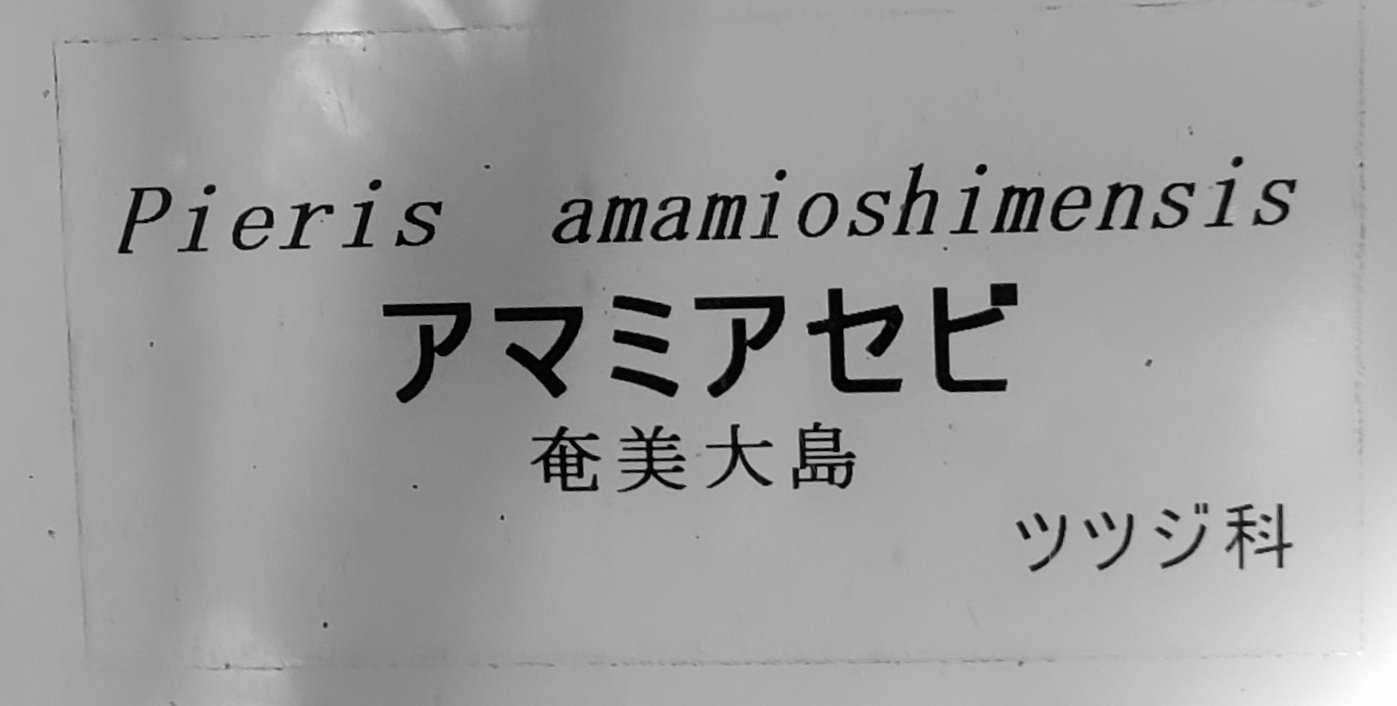 Pieris amamioshimensis
アマミアセビ
奄美大島
ツツジ科